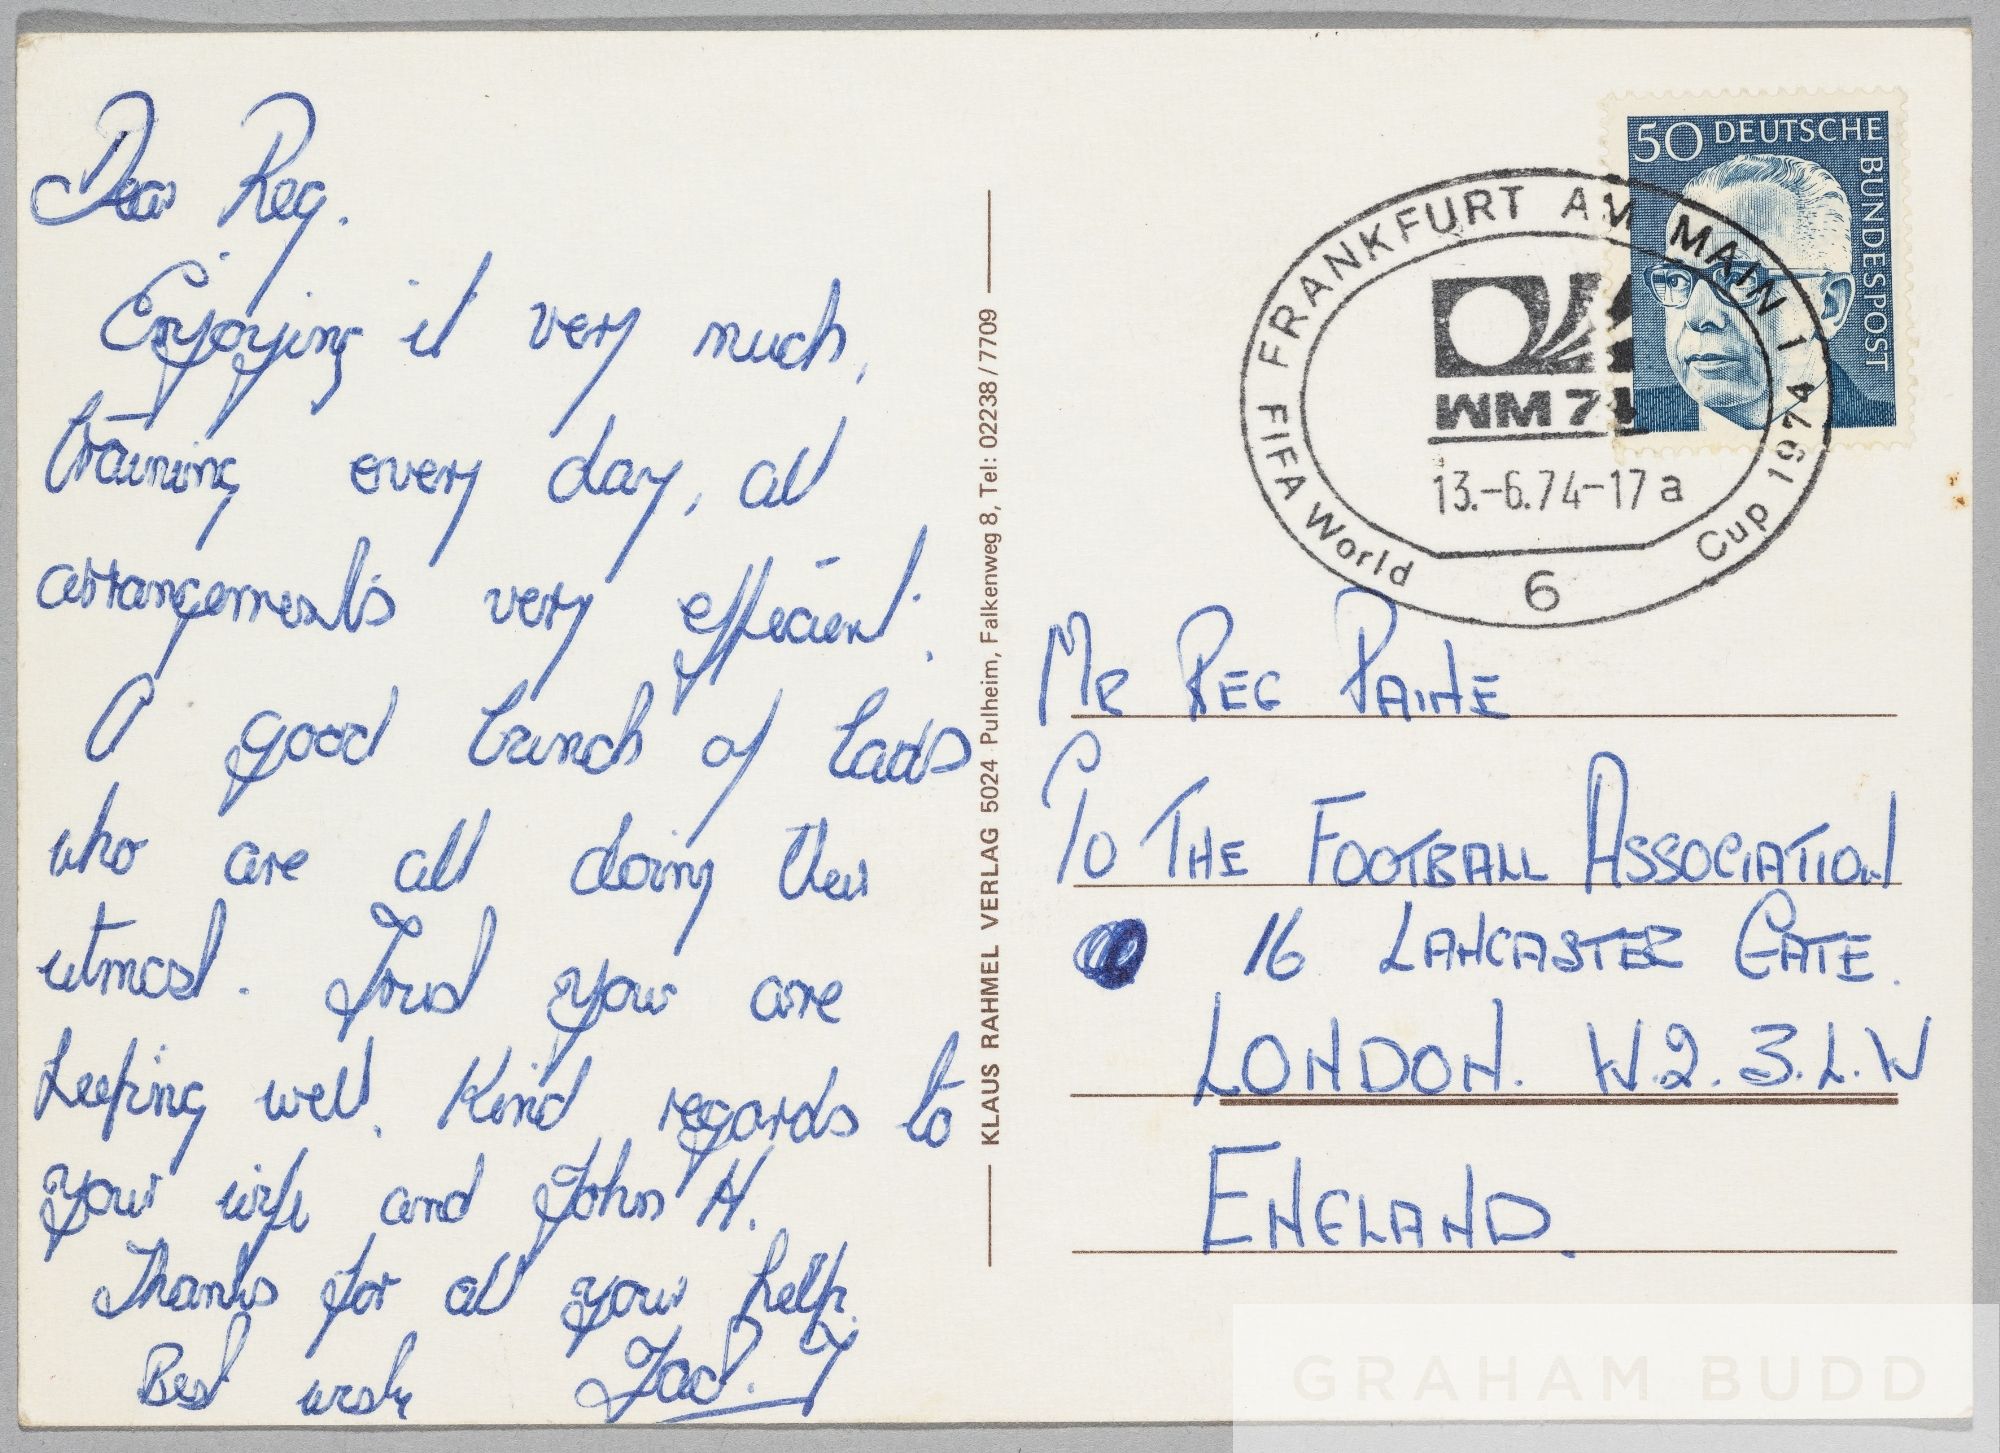 Dear Reg.
Enjoying it very much,
training every day, all
arrangements very efficient.
A good bunch of lads
who are all doing their
utmost. Trust you are
keeping well. Kind regards to
your wife and John H.
Thanks for all your help.
Best wish
Jack.
KLAUS RAHMEL VERLAG 5024 Pulheim, Falkenweg 8, Tel: 02238/7709
50 DEUTSCHE BUNDESPOST
FRANKFURT AM MAIN 1
WM 74
13.-6.74-17 a
FIFA World Cup 1974
6
MR REG PAINE
TO THE FOOTBALL ASSOCIATION
16 LANCASTER GATE.
LONDON. W.2. 3.L.W
ENGLAND.
GRAHAM BUDD